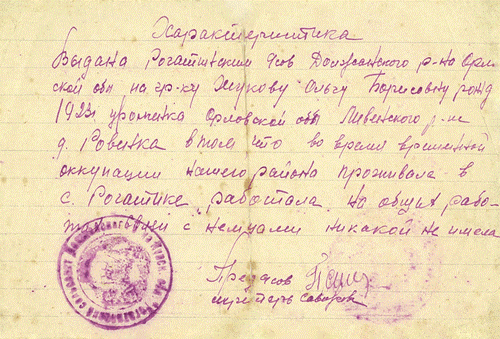 Характеристика
Выдана Рогатинским с/сов Должанского р-на Орлов
ской обл на гр-ку Жукову Ольгу Борисовну рожд
1923 уроженка Орловской обл Ливенского р-на
д. Ровенка в том что во время временной
оккупации нашего района проживала в
с. Рогатике работала на общих рабо-
тах связей с немцами никакой не имела
Пред/сов
секретарь